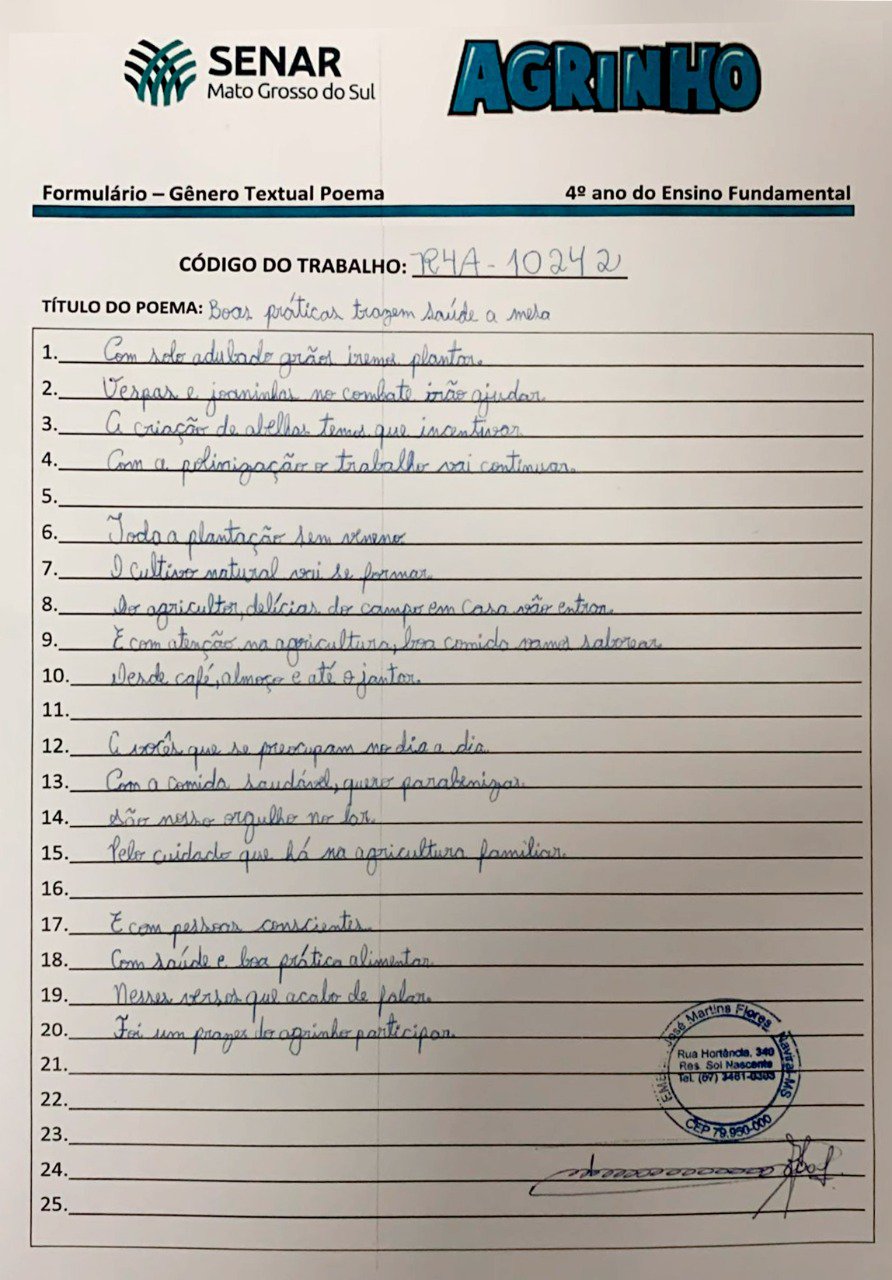 SENAR
Mato Grosso do Sul
AGRINHO
Formulário – Gênero Textual Poema 4º ano do Ensino Fundamental
CÓDIGO DO TRABALHO: R4A-10242
TÍTULO DO POEMA: Boas práticas trazem saúde a mesa
1. Com solo adubado grãos iremos plantar.
2. Vespas e joaninhas no combate irão ajudar.
3. A criação de abelhas temos que incentivar
4. Com a polinização o trabalho vai continuar.
5.
6. Toda a plantação sem veneno
7. O cultivo natural vai se formar
8. Do agricultor, delícias do campo em casa vão entrar.
9. E com atenção na agricultura, boa comida vamos saborear
10. Desde café, almoço e até o jantar.
11.
12. A vocês que se preocupam no dia a dia
13. Com a comida saudável, quero parabenizar.
14. São nosso orgulho no lar.
15. Pelo cuidado que há na agricultura familiar.
16.
17. E com pessoas conscientes.
18. Com saúde e boa prática alimentar
19. Nesses versos que acabo de falar.
20. Foi um prazer do agrinho participar.
21.
22.
23.
24.
25.
José Martins Flores Naviraí-MS
Rua Hortência, 340
Res. Sol Nascente
Tel. (67) 3461-0303
CEP 79.950-000